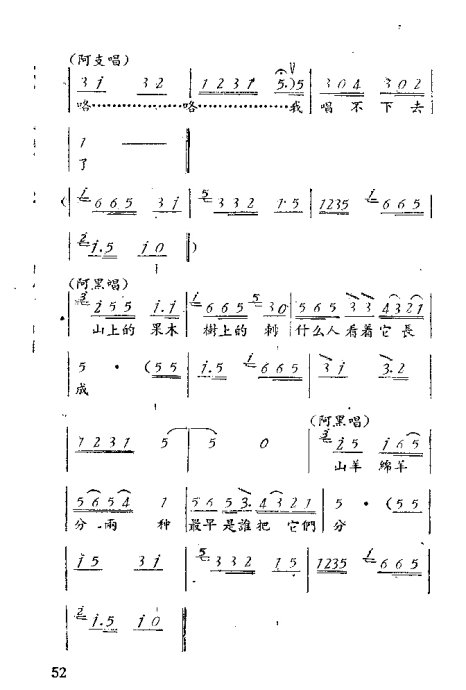 (阿支唱)
3 i 3 2 | 1 2 3 1 5.)5 | 3 0 4 3 0 2
咯………………咯………………我 唱 不 下 去
1 —
了
( i 6 6 5 3 i | 5 3 3 2 1·5 | 1235 i 6 6 5
2 i.5 i 0 )
(阿黑唱)
2 i 5 5 i.i | i 6 6 5 5 3 0 | 5 6 5 3 3 4 3 2 1
山上的 果木 樹上的 刺 什么人 看着它 長
5 · (5 5 | i.5 i 6 6 5 | 3 i 3.2
成
1 2 3 1 5 | 5 0 |
(阿黑唱)
2 i 5 i 6 5
山羊 綿羊
5 6 5 4 1 | 5 6 5 3. 4 3 2 1 | 5 · (5 5
分 兩 种 最早 是誰把 它們 分
i 5 3 i | 5 3 3 2 1 5 | 1235 i 6 6 5
2 i.5 i 0
52